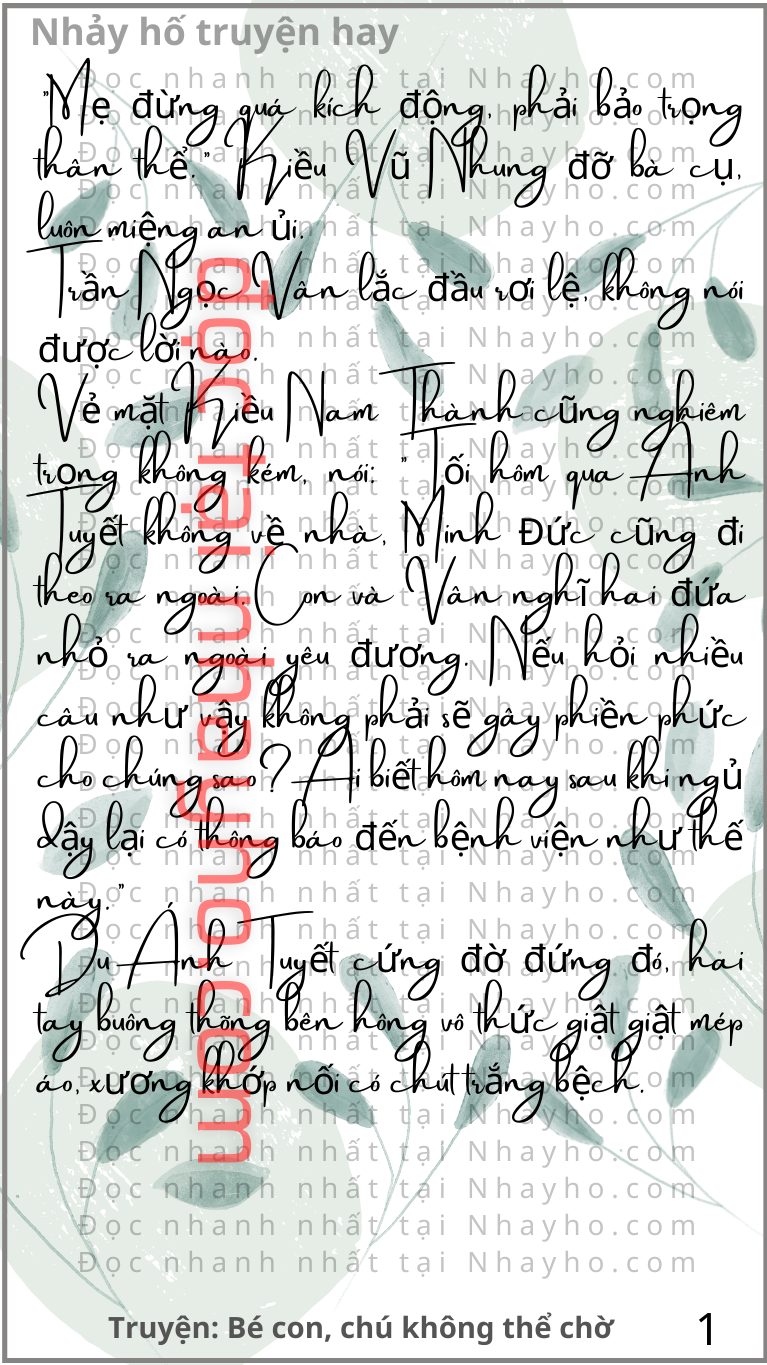 Nhảy hố truyện hay
"Mẹ đừng quá kích động, phải bảo trọng
thân thể." Kiều Vũ Nhung đỡ bà cụ,
luôn miệng an ủi.
Trần Ngọc Vân lắc đầu rơi lệ, không nói
được lời nào.
Vẻ mặt Kiều Nam Thành cũng nghiêm
trọng không kém, nói: "Tối hôm qua Anh
Tuyết không về nhà, Minh Đức cũng đi
theo ra ngoài. Con và Vân nghĩ hai đứa
nhỏ ra ngoài yêu đương. Nếu hỏi nhiều
câu như vậy không phải sẽ gây phiền phức
cho chúng sao? Ai biết hôm nay sau khi ngủ
dậy lại có thông báo đến bệnh viện như thế
này."
Du Ánh Tuyết cứng đờ đứng đó, hai
tay buông thõng bên hông vô thức giật giật mép
áo, xương khớp nối có chút trắng bệch.
Đọc nhanh nhất tại Nhayho.com
đọc tại nhayho.com
Truyện: Bé con, chú không thể chờ
1